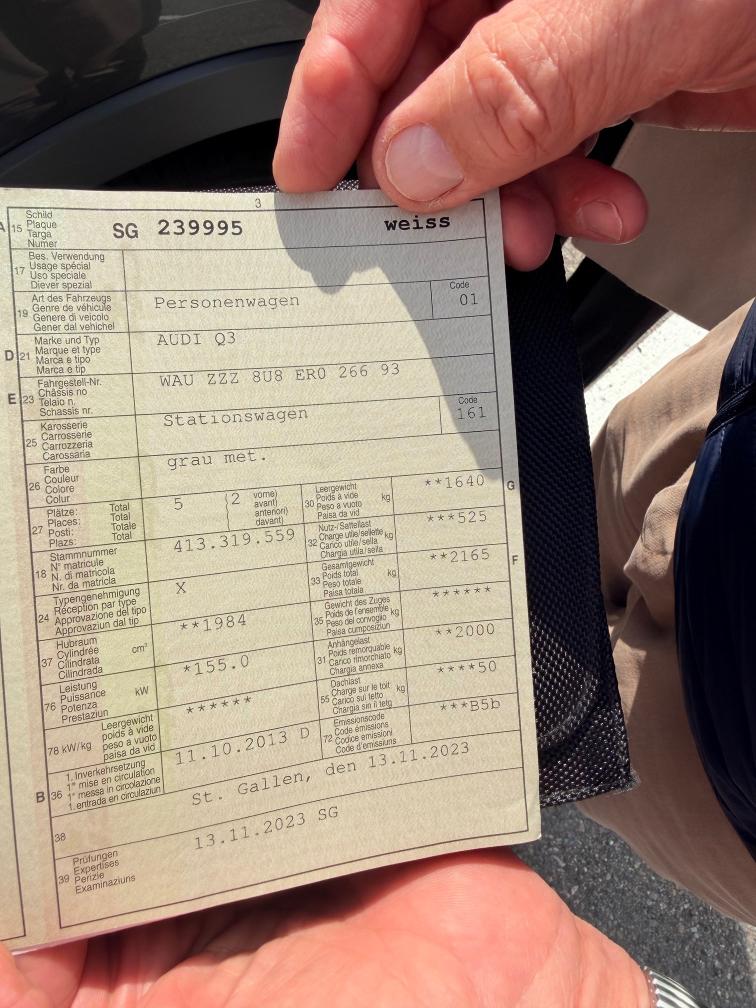 3
A 15 Schild Plaque Targa Numer SG 239995 weiss
17 Bes. Verwendung Usage spécial Uso speciale Diever spezial
19 Art des Fahrzeugs Genre de véhicule Genere di veicolo Gener dal vehichel Personenwagen Code 01
D 21 Marke und Typ Marque et type Marca e tipo Marca e tip AUDI Q3
E 23 Fahrgestell-Nr. Châssis no Telaio n. Schassis nr. WAU ZZZ 8U8 ER0 266 93
25 Karosserie Carrosserie Carrozzeria Carossaria Stationswagen Code 161
26 Farbe Couleur Colore Colur grau met.
27 Plätze: Total Places: Total Posti: Totale Plazs: Total 5 (2 vorne) avant) anteriori) davant)
30 Leergewicht Poids à vide Peso a vuoto Paisa da vid kg **1640 G
18 Stammnummer N° matricule N. di matricola Nr. da matricla 413.319.559
32 Nutz-/Sattellast Charge utile/sellette Carico utile/sella Chargia utila/sella kg ***525
24 Typengenehmigung Réception par type Approvazione del tipo Approvaziun dal tip X
33 Gesamtgewicht Poids total Peso totale Paisa totala kg **2165 F
37 Hubraum Cylindrée Cilindrata Cilindrada cm³ **1984
35 Gewicht des Zuges Poids de l'ensemble Peso del convoglio Paisa cumposiziun kg ******
76 Leistung Puissance Potenza Prestaziun kW *155.0
31 Anhängelast Poids remorquable Carico rimorchiato Chargia annexa kg **2000
78 kW/kg Leergewicht poids à vide peso a vuoto paisa da vid ******
55 Dachlast Charge sur le toit Carico sul tetto Chargia sin il tetg kg ****50
B 36 1. Inverkehrsetzung 1re mise en circulation 1a messa in circolazione 1. entrada en circulaziun 11.10.2013 D
72 Emissionscode Code émissions Codice emissioni Code d'emissiuns ***B5b
38 St. Gallen, den 13.11.2023
39 Prüfungen Expertises Perizie Examinaziuns 13.11.2023 SG